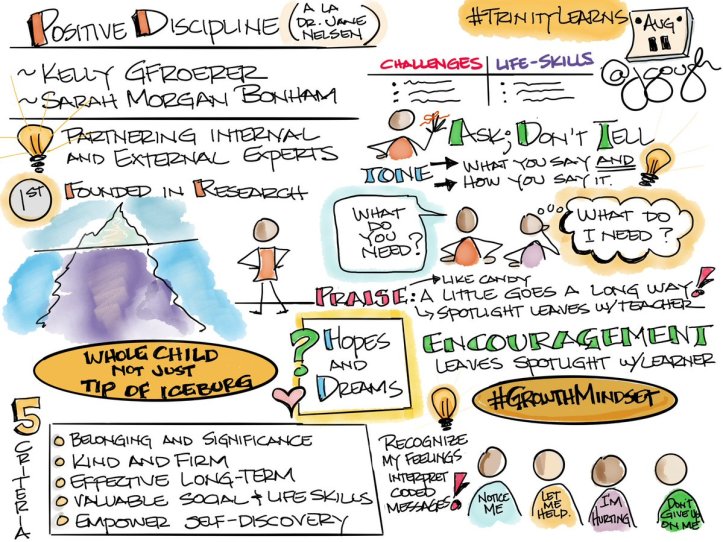 Positive Discipline
(A LA
DR. JANE
NELSEN)
#TrinityLearns
AUG
11
@jgough
~Kelly Gfroerer
~Sarah Morgan Bonham
CHALLENGES
LIFE-SKILLS
Partnering Internal
and External Experts
1ST
Founded in Research
Ask; Don't Tell
TONE
WHAT YOU SAY AND
HOW YOU SAY IT.
WHAT
DO
YOU
NEED?
WHAT DO
I NEED?
PRAISE:
LIKE CANDY
A LITTLE GOES A LONG WAY!
SPOTLIGHT LEAVES W/TEACHER
WHOLE CHILD
NOT JUST
TIP OF ICEBURG
?
HOPES
AND
DREAMS
ENCOURAGEMENT
LEAVES SPOTLIGHT W/LEARNER
#GrowthMindset
5
CRITERIA
BELONGING AND SIGNIFICANCE
KIND AND FIRM
EFFECTIVE LONG-TERM
VALUABLE SOCIAL + LIFE SKILLS
EMPOWER SELF-DISCOVERY
RECOGNIZE
MY FEELINGS
INTERPRET
CODED
MESSAGES!
NOTICE
ME
LET
ME
HELP.
I'M
HURTING
DON'T
GIVE UP
ON ME